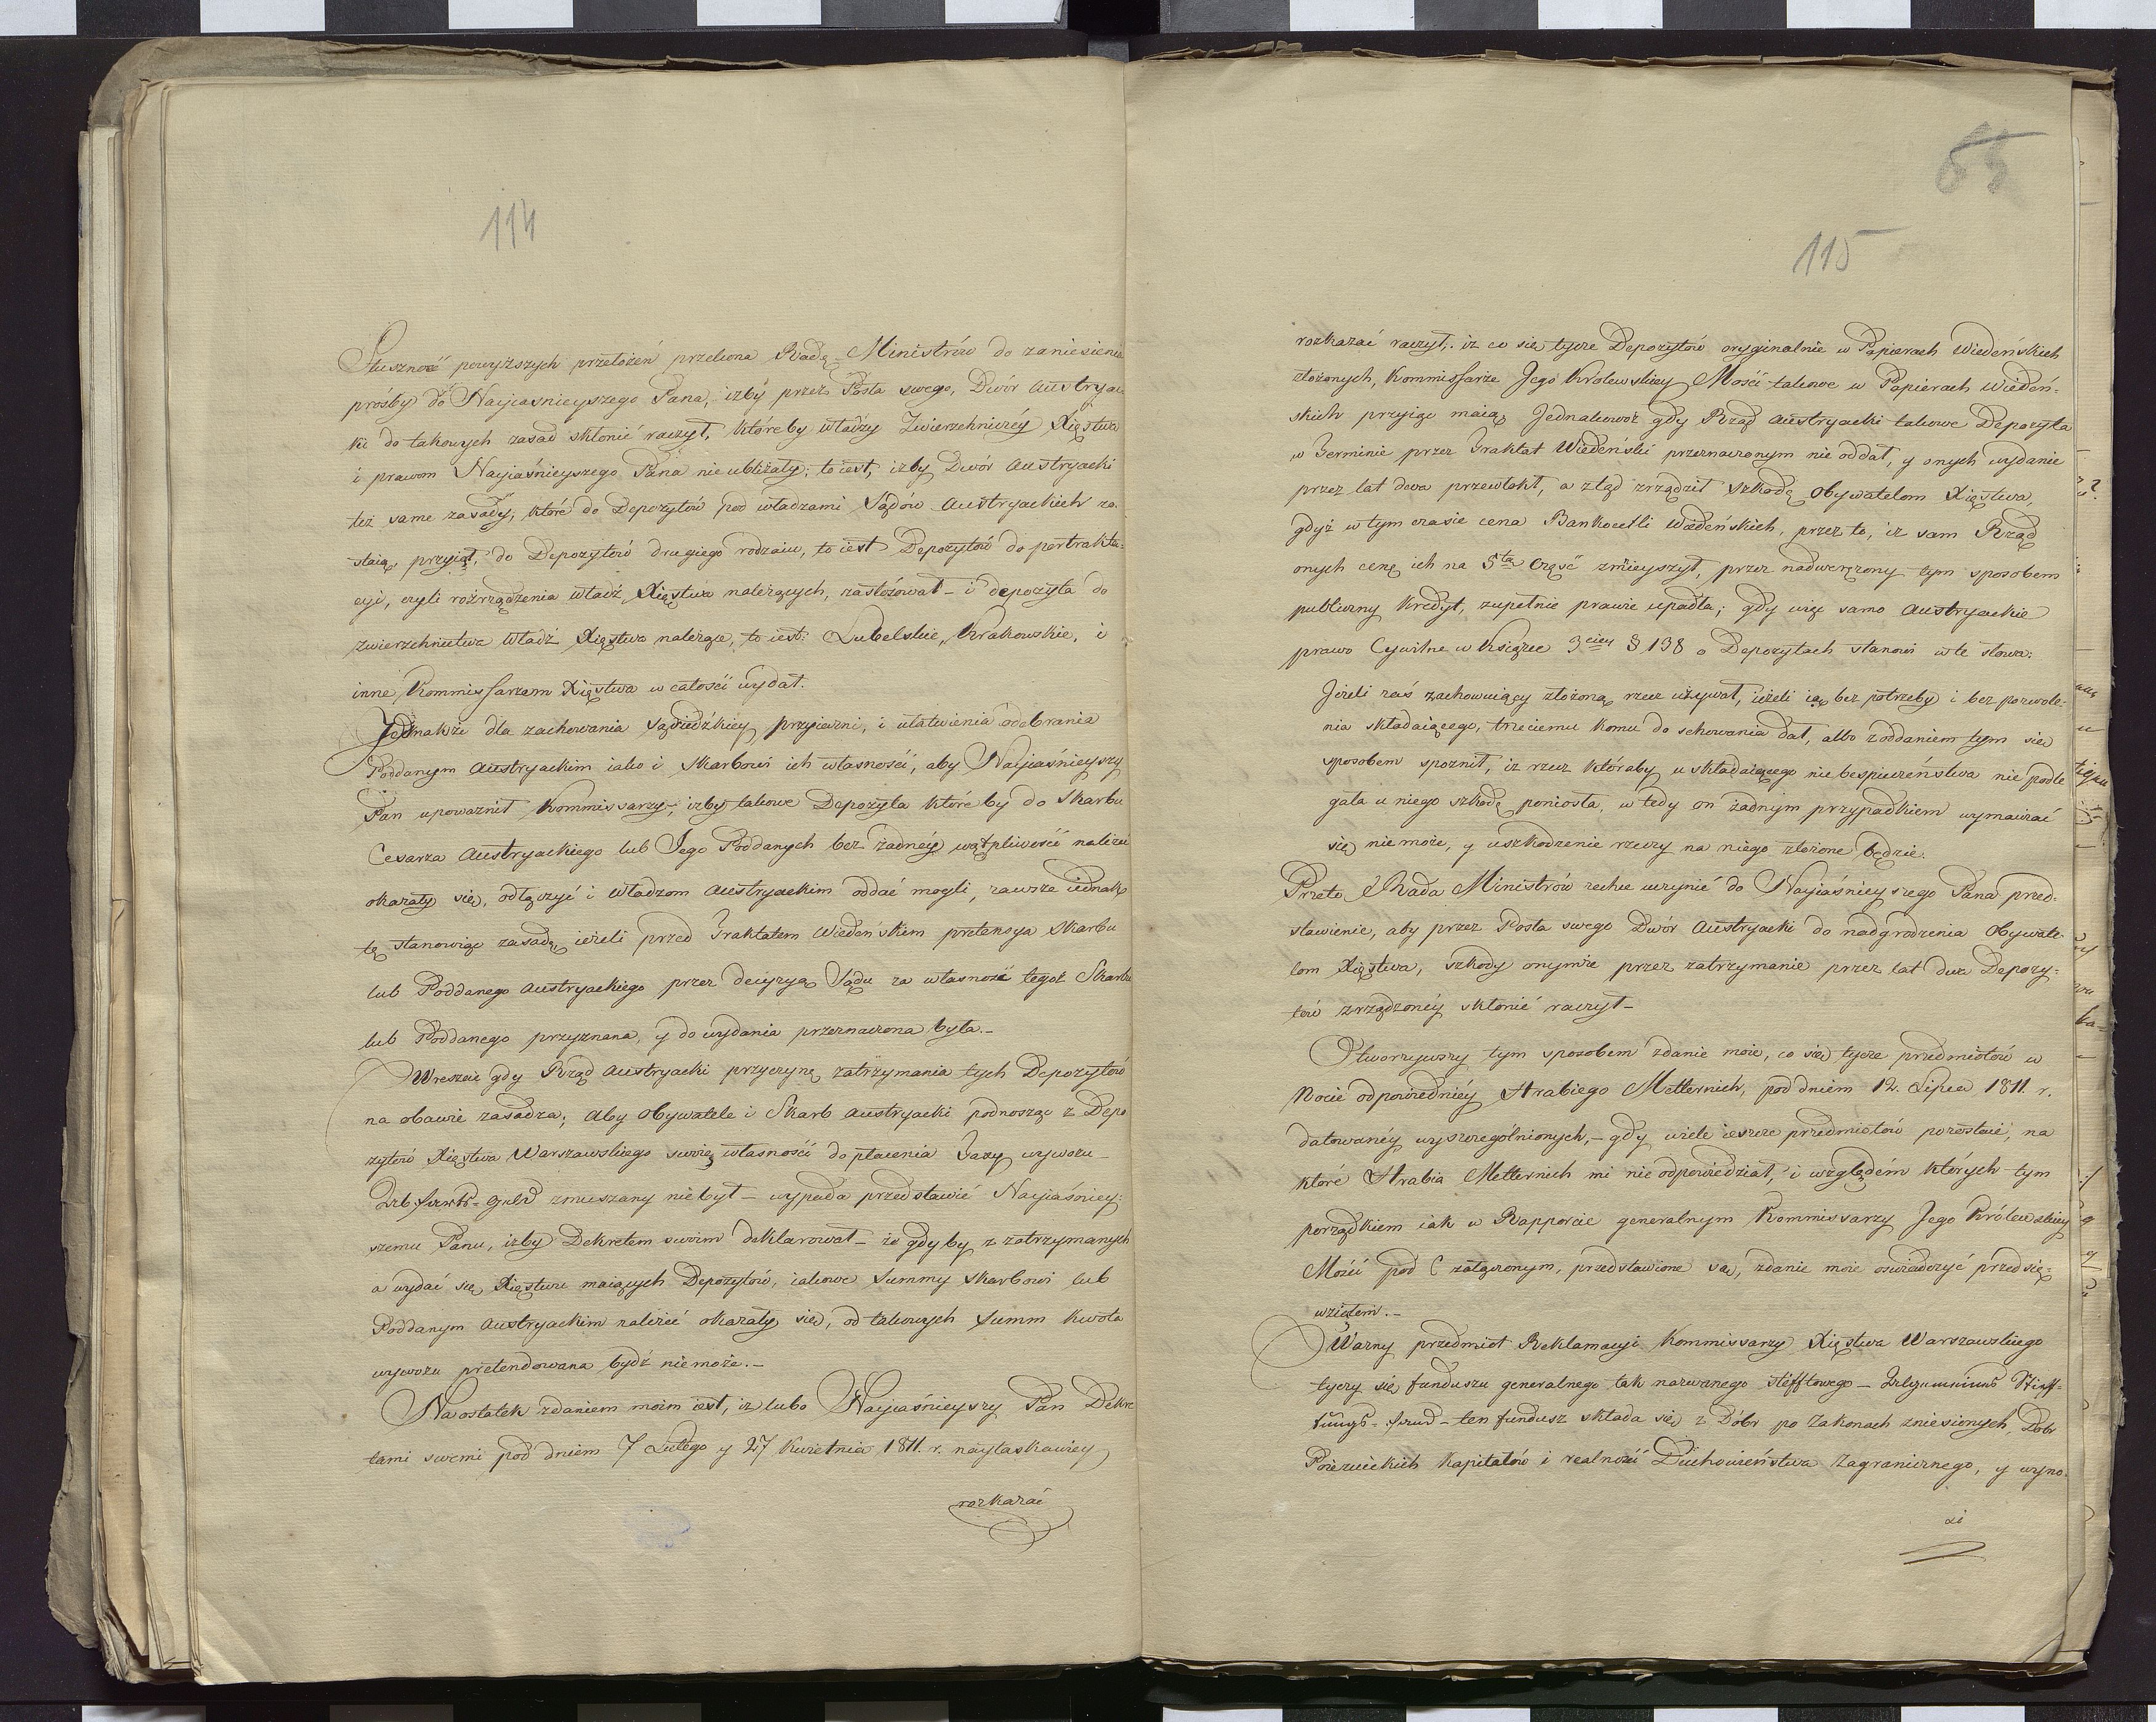 114
Słuszność powyższych przełożeń przekona Radę Ministrów do zaniesienia
prośby do Nayiasnieyszego Pana, izby przez Posła swego, Dwór Austryac
ki do takowych zasad skłonić raczył, któreby władzy Zwierzchniczéy Xięstwa
i prawom Nayiaśnieyszego Pana nie ubliżały; to iest, izby Dwór Austryacki
też same zasady, które do Depozytów pod władzami Sądów Austryackich zo-
staią, przyiął, do Depozytów drugiego rodzaiu, to iest Depozytów do pertrakta-
cyi, czyli rozrządzenia władz Xięstwa należących, zastósował – i depozyta do
zwierzchnictwa władz Xięstwa należące, to iest: Lubelskie, Krakowskie, i
inne Kommissarzom Xięstwa w całości wydał.
Jednakże dla zachowania sąsiedzkiey przyiazni, i ułatwienia odebrania
Poddanym Austryackim iako i Skarbowi ich własności, aby Nayiaśnieyszy
Pan upoważnił Kommissarzy, izby takowe Depozyta któreby do Skarbu
Cesarza Austryackiego lub Jego Poddanych bez żadnéy wątpliwości należeć
okazały się, odłączyć i władzom Austryackim oddać mogli, zawsze iednak
tę stanowiąc zasadę, ieżeli przed Traktatem Wiedeńskim pretensya Skarbu
lub Poddanego Austryackiego przez decyzyą Sądu za własność tegoż Skarbu
lub Poddanego przyznana, y do wydania przeznaczona była. –
Wreszcie gdy Rząd Austryacki przyczynę zatrzymania tych Depozytów
na obawie zasadza; aby Obywatele i Skarb Austryacki podnosząc z Depo
zytów Xięstwa Warszawskiego swoię własności do płacenia Taxy wywozu –
zmuszany nie był – wypada przedstawić Nayiaśniey-
szemu Panu, izby Dekretem swoim deklarował – że gdyby z zatrzymanych
a wydać się Xięstwu maiących Depozytów, iakowe Summy Skarbowi lub
Poddanym Austryackim należeć okazały się, od takowych Summ kwota
wywozu pretendowana bydź nie może. –
Na ostatek zdaniem moim iest, iż lubo Nayiaśnieyszy Pan Dekre
tami swemi pod dniem 7 Lutego y 27 Kwietnia 1811. r. nayłaskawiey
rozkazać
65
115
rozkazać raczył, iż co się tycze Depozytów oryginalnie w Papierach Wiedeńskich
złożonych, Kommissarze Jego Królewskiey Mości takowe w Papierach Wiedeń-
skich przyiąć maią, Jednakowoż gdy Rząd Austryacki takowe Depozyta
w Terminie przez Traktat Wiedeński przeznaczonym nie oddał, y onych wydanie
przez lat dwa przewlókł, a ztąd zrządził szkodę Obywatelom Xięstwa,
gdyż w tym czasie cena Bankocetli Wiedeńskich, przez to, iż sam Rząd
onych cenę ich na 5tą Część zmieyszył, przez nadwerężony tym sposobem
publiczny Kredyt, zupełnie prawie upadła; gdy więc samo Austryackie
prawo Cywilne w Księdze 3ciey § 138 o Depozytach stanowi w te słowa:
Jeżeli zaś zachowuiący złożoną rzecz używał, ieżeli ią bez potrzeby i bez pozwole-
nia składaiącego, trzeciemu komu do schowania dał, albo z oddaniem tym się
sposobem spoznił, iż rzecz któraby u składaiącego niebespieczeństwa nie podle
gała u niego szkodę poniosła, w tedy on żadnym przypadkiem wymawiać
się nie może, y uszkodzenie rzeczy na niego złożone będzie.
Przeto Rada Ministrów zechce uczynić do Nayiaśnieyszego Pana przed-
stawienie, aby przez Posła swego Dwór Austryacki do nadgrodzenia Obywate-
lom Xięstwa, szkody onymże przez zatrzymanie przez lat dwa Depozy-
tów zrządzonéy skłonić raczył –
Otworzywszy tym sposobem zdanie moie, co się tycze przedmiotów w
Nocie odpowiedniéy Hrabiego Metternich, pod dniem 12. Lipca 1811. r.
datowanéy wyszczególnionych, – gdy wiele ieszcze przedmiotów pozostaie, na
które Hrabia Metternich mi nie odpowiedział, i względem których tym
porządkiem iak w Rapporcie generalnym Kommissarzy Jego Królewskiey
Mości pod C załączonym, przedstawione są, zdanie moie oswiadczyć przedsię-
wziąłem. –
Ważny przedmiot Reklamacyi Kommissarzy Xięstwa Warszawskiego
tyczy się funduszu generalnego tak nazwanego stifftowego –
– ten fundusz składa się z Dóbr po Zakonach zniesionych, Dóbr
Poiezuickich Kapitałów i realności Duchowieństwa Zagranicznego, y wyno-
si